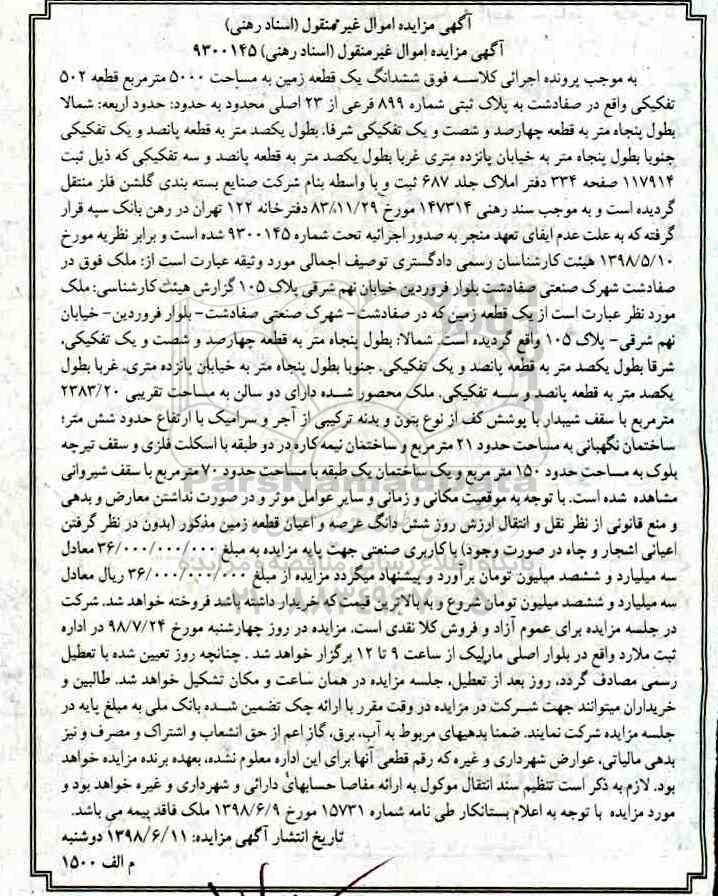 آگهی مزایده اموال غیرمنقول (اسناد رهنی)
آگهی مزایده اموال غیرمنقول (اسناد رهنی) ۹۳۰۰۱۴۵
به موجب پرونده اجرائی کلاسه فوق ششدانگ یک قطعه زمین به مساحت ۵۰۰۰ مترمربع قطعه ۵۰۲
تفکیکی واقع در صفادشت به پلاک ثبتی شماره ۸۹۹ فرعی از ۲۳ اصلی محدود به حدود: حدود اربعه: شمالا
بطول پنجاه متر به قطعه چهارصد و شصت و یک تفکیکی شرقا. بطول یکصد متر به قطعه پانصد و یک تفکیکی
جنوبا بطول پنجاه متر به خیابان پانزده متری غربا بطول یکصد متر به قطعه پانصد و سه تفکیکی که ذیل ثبت
۱۱۷۹۱۴ صفحه ۳۳۴ دفتر املاک جلد ۶۸۷ ثبت و با واسطه بنام شرکت صنایع بسته بندی گلشن فلز منتقل
گردیده است و به موجب سند رهنی ۱۴۷۳۱۴ مورخ ۸۳/۱۱/۲۹ دفترخانه ۱۲۲ تهران در رهن بانک سپه قرار
گرفته که به علت عدم ایفای تعهد منجر به صدور اجرائیه تحت شماره ۹۳۰۰۱۴۵ شده است و برابر نظریه مورخ
۱۳۹۸/۵/۱۰ هیئت کارشناسان رسمی دادگستری توصیف اجمالی مورد وثیقه عبارت است از: ملک فوق در
صفادشت شهرک صنعتی صفادشت بلوار فروردین خیابان نهم شرقی پلاک ۱۰۵ گزارش هیئت کارشناسی: ملک
مورد نظر عبارت است از یک قطعه زمین که در صفادشت- شهرک صنعتی صفادشت- بلوار فروردین- خیابان
نهم شرقی- پلاک ۱۰۵ واقع گردیده است. شمالا: بطول پنجاه متر به قطعه چهارصد و شصت و یک تفکیکی.
شرقا بطول یکصد متر به قطعه پانصد و یک تفکیکی. جنوبا بطول پنجاه متر به خیابان پانزده متری. غربا بطول
یکصد متر به قطعه پانصد و سه تفکیکی. ملک محصور شده دارای دو سالن به مساحت تقریبی ۲۳۸۳/۲۰
مترمربع با سقف شیبدار با پوشش کف از نوع بتون و بدنه ترکیبی از آجر و سرامیک با ارتفاع حدود شش متر؛
ساختمان نگهبانی به مساحت حدود ۲۱ مترمربع و ساختمان نیمه کاره در دو طبقه با اسکلت فلزی و سقف تیرچه
بلوک به مساحت حدود ۱۵۰ متر مربع و یک ساختمان یک طبقه با مساحت حدود ۷۰ مترمربع با سقف شیروانی
مشاهده شده است. با توجه به موقعیت مکانی و زمانی و سایر عوامل موثر و در صورت نداشتن معارض و بدهی
و منع قانونی از نظر نقل و انتقال ارزش روز شش دانگ عرصه و اعیان قطعه زمین مذکور (بدون در نظر گرفتن
اعیانی اشجار و چاه در صورت وجود) با کاربری صنعتی جهت پایه مزایده به مبلغ ۳۶/۰۰۰/۰۰۰/۰۰۰ معادل
سه میلیارد و ششصد میلیون تومان برآورد و پیشنهاد میگردد مزایده از مبلغ ۳۶/۰۰۰/۰۰۰/۰۰۰ ریال معادل
سه میلیارد و ششصد میلیون تومان شروع و به بالاترین قیمت که خریدار داشته باشد فروخته خواهد شد. شرکت
در جلسه مزایده برای عموم آزاد و فروش کلا نقدی است. مزایده در روز چهارشنبه مورخ ۹۸/۷/۲۴ در اداره
ثبت ملارد واقع در بلوار اصلی مارلیک از ساعت ۹ تا ۱۲ برگزار خواهد شد. چنانچه روز تعیین شده با تعطیل
رسمی مصادف گردد، روز بعد از تعطیل، جلسه مزایده در همان ساعت و مکان تشکیل خواهد شد. طالبین و
خریداران میتوانند جهت شرکت در مزایده در وقت مقرر با ارائه چک تضمین شده بانک ملی به مبلغ پایه در
جلسه مزایده شرکت نمایند. ضمنا بدهیهای مربوط به آب، برق، گاز اعم از حق انشعاب و اشتراک و مصرف و نیز
بدهی مالیاتی، عوارض شهرداری و غیره که رقم قطعی آنها برای این اداره معلوم نشده، بعهده برنده مزایده خواهد
بود. لازم به ذکر است تنظیم سند انتقال موکول به ارائه مفاصا حسابهای دارائی و شهرداری و غیره خواهد بود و
مورد مزایده با توجه به اعلام بستانکار طی نامه شماره ۱۵۷۳۱ مورخ ۱۳۹۸/۶/۹ ملک فاقد بیمه می باشد.
تاریخ انتشار آگهی مزایده: ۱۳۹۸/۶/۱۱ دوشنبه
م الف ۱۵۰۰
ParsNamadData
پایگاه اطلاع رسانی مناقصه و مزایده